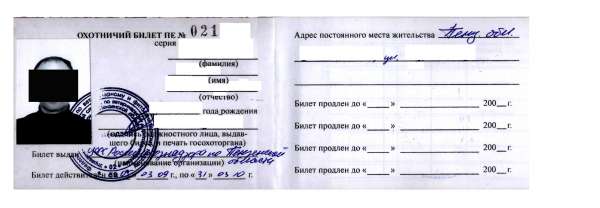 ОХОТНИЧИЙ БИЛЕТ ПЕ № 021
серия
(фамилия)
(имя)
(отчество)
года рождения
должностного лица, выдав-
шего билет и печать госохоторгана)
Билет выдан
(наименование организации)
Билет действителен с 03 09 г., по « 31 » 03 10 г.
Адрес постоянного места жительства Пенз. обл.
ул.
Билет продлен до « » 200 г.
Билет продлен до « » 200 г.
Билет продлен до « » 200 г.
Билет продлен до « » 200 г.